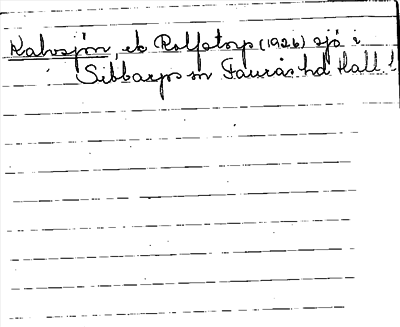 Kalvsjön, ek Rolfstorp (1926) sjö i
Sibbarps sn Faurås hd Hall. l